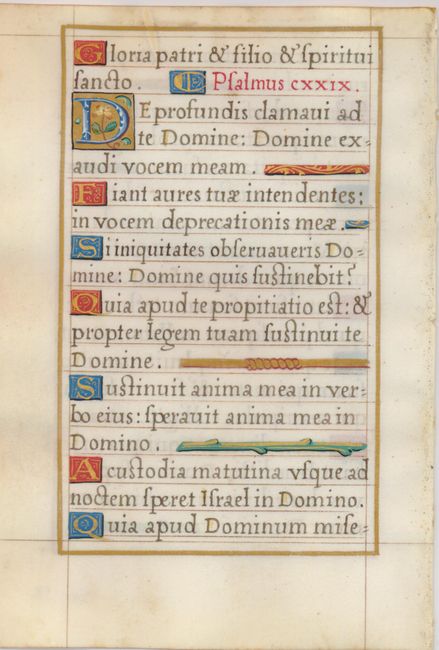 Gloria patri & filio & ſpiritui
ſancto. Pſalmus cxxix.
DE profundis clamaui ad
te Domine: Domine ex-
audi vocem meam.
Fiant aures tuæ intendentes:
in vocem deprecationis meæ.
Si iniquitates obſeruaueris Do-
mine: Domine quis ſuſtinebit?
Quia apud te propitiatio est: &
propter legem tuam ſuſtinui te
Domine.
Suſtinuit anima mea in ver-
bo eius: ſperauit anima mea in
Domino.
A cuſtodia matutina vſque ad
noctem ſperet Iſrael in Domino.
Quia apud Dominum miſe-